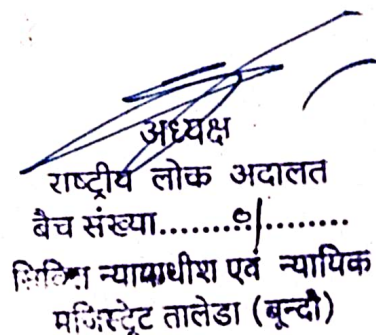 अध्यक्ष
राष्ट्रीय लोक अदालत
बैच संख्या.........०1.........
सिविल न्यायाधीश एवं न्यायिक
मजिस्ट्रेट तालेडा (बून्दी)